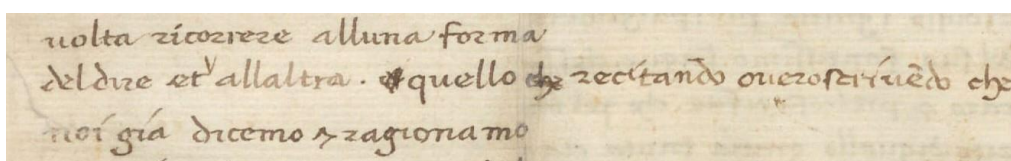 uolta ricorrere alluna forma
del dire et allaltra . quello che recitando ouero scriuēdo che
noi gia dicemo & ragionamo